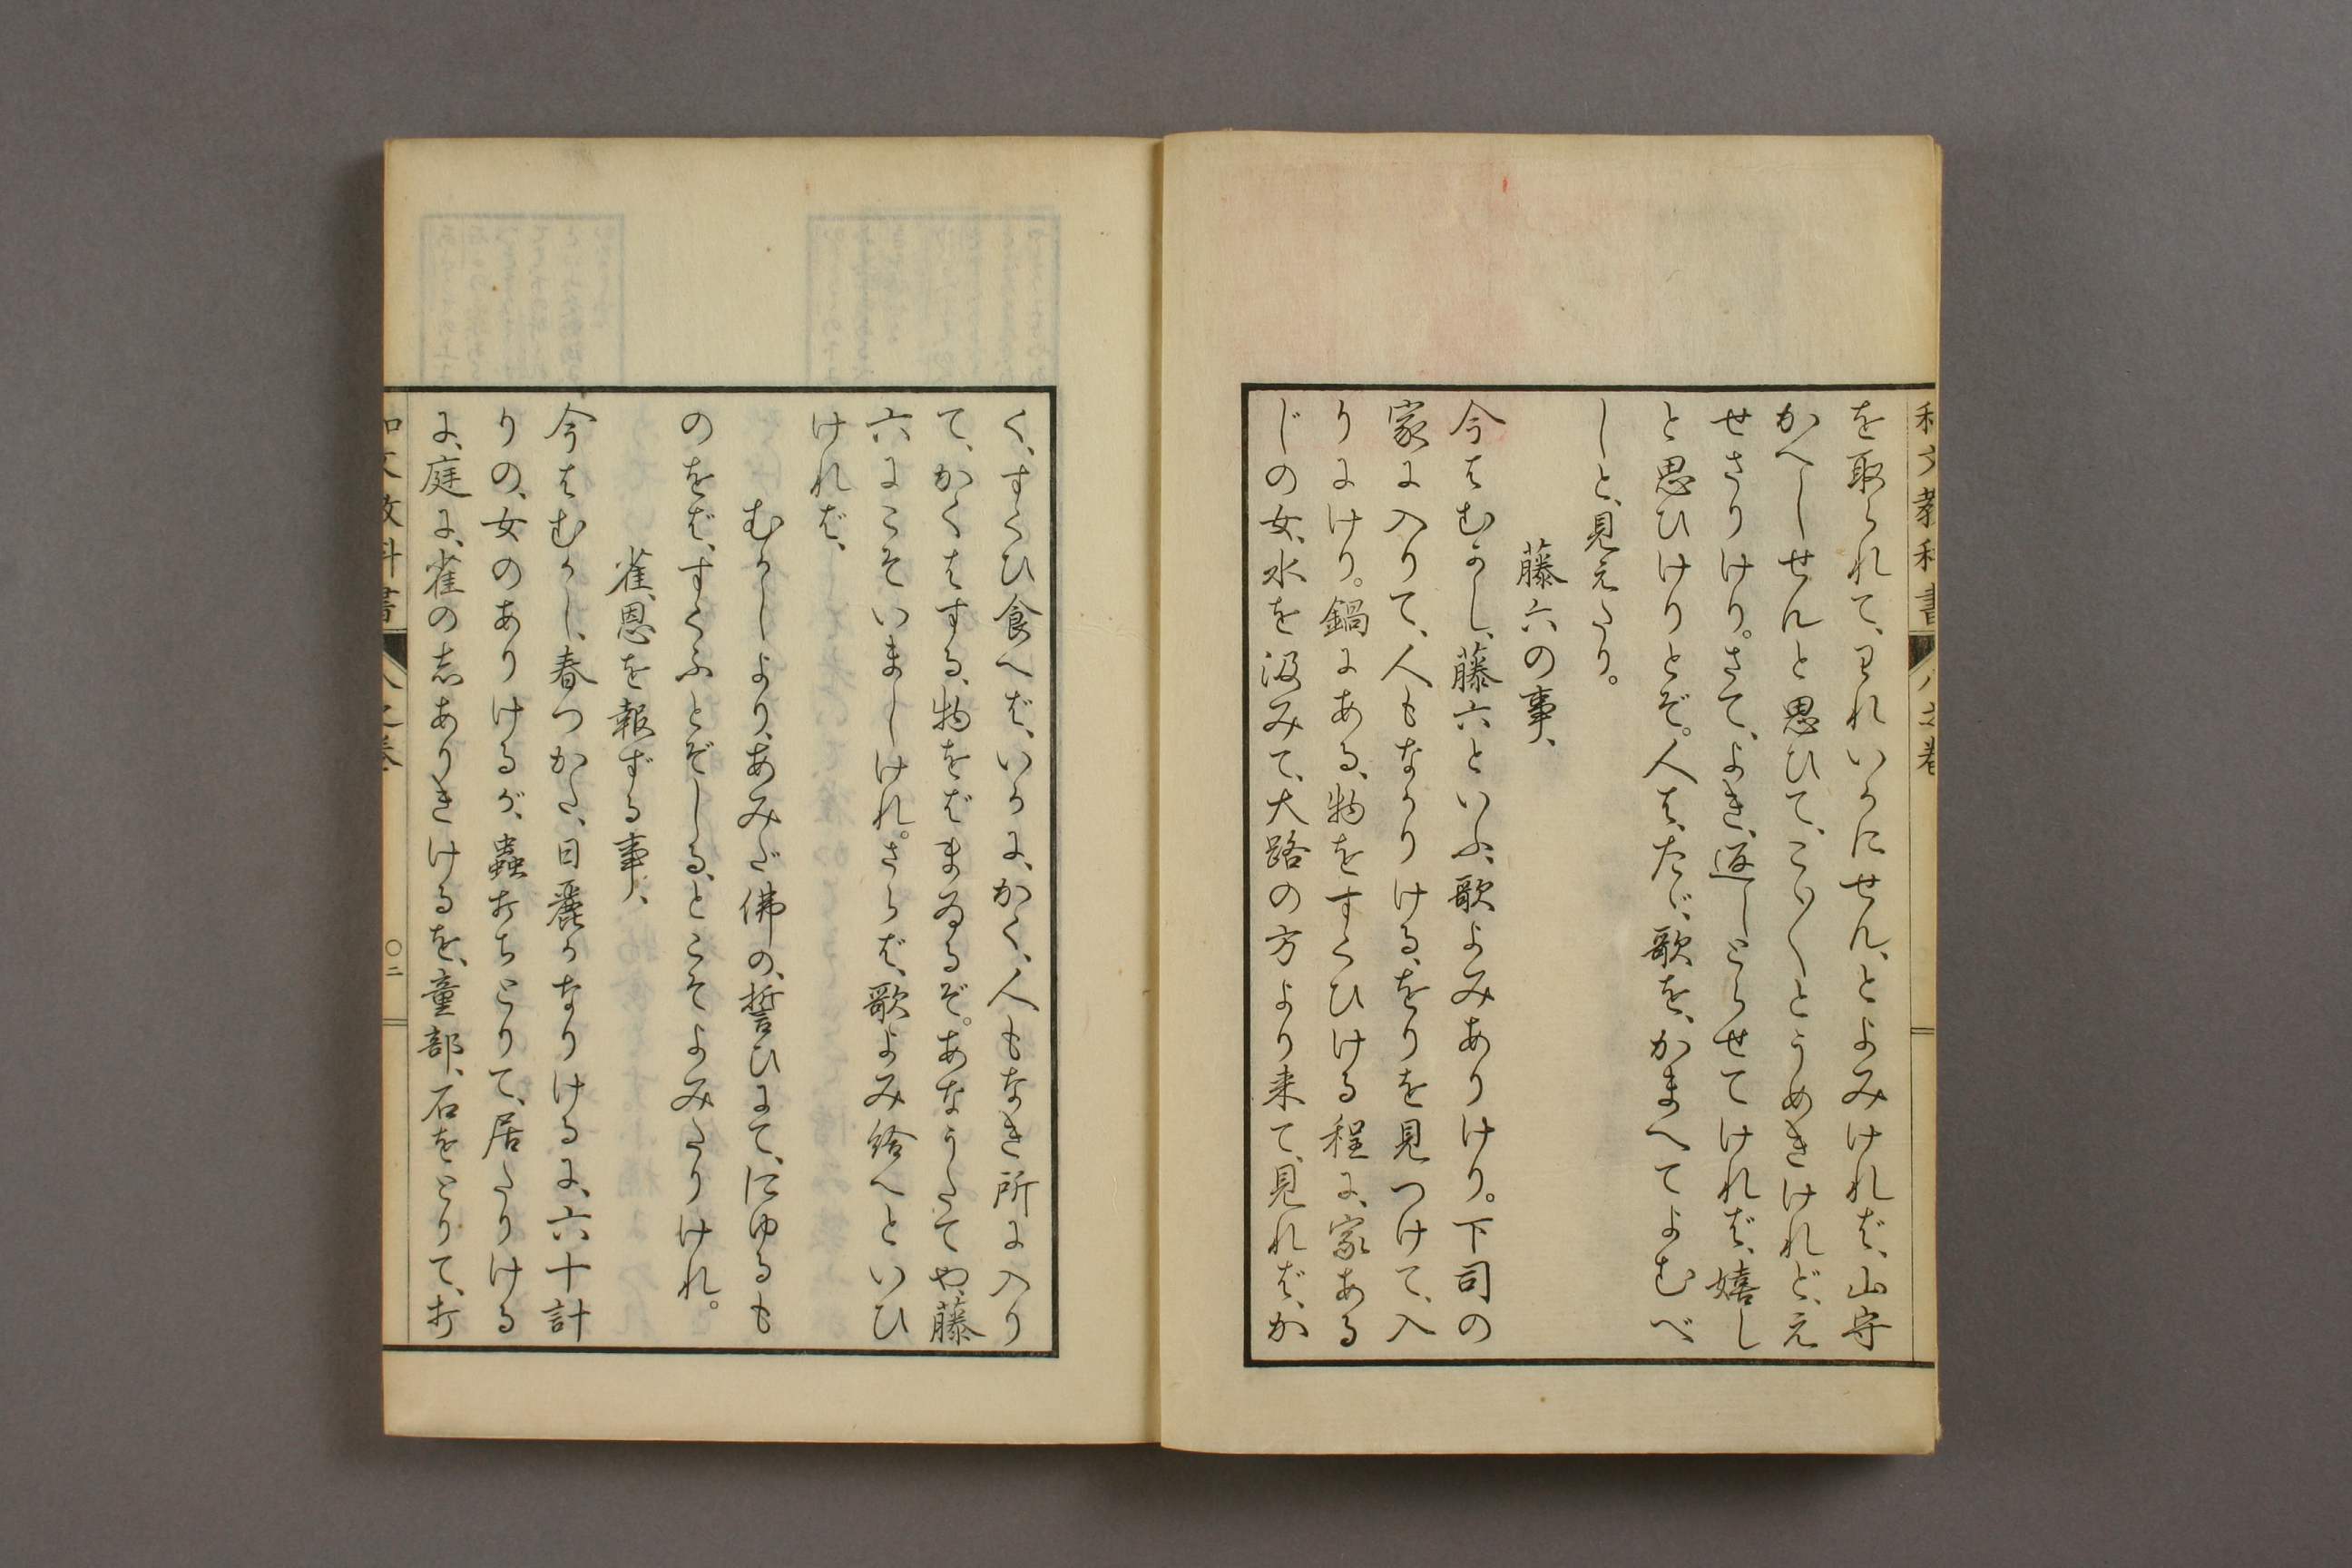 和文教科書 八之卷
を取られて、われいかにせん、とよみければ、山守
かへしせんと思ひて、こゝろ〱とうめきけれど、え
せざりけり。さて、よき、返しとらせてければ、嬉し
と思ひけりとぞ。人は、たゞ、歌を、かまへてよむべ
しと、見えたり。
藤六の事、
今はむかし、藤六といふ、歌よみありけり。下司の
家に入りて、人もなかりける、をりを見つけて、入
りにけり。鍋にある、物をすくひける程に、家ある
じの女、水を汲みて、大路の方より来て、見れば、か
く、すくひ食へば、いかに、かく、人もなき所に入り
て、かくはする、物をばまゐるぞ。あなうたてや、藤
六にこそいましけれ。さらば、歌よみ給へといひ
ければ、
むかしより、あみだ佛の、誓ひにて、にゆるも
のをば、すくふとぞしる、とこそよみたりけれ。
雀、恩を報ずる事、
今はむかし、春つかた、日麗かなりけるに、六十計
りの、女のありけるが、蟲打ちとりて、居たりける
に、庭に、雀の志ありきけるを、童部、石をとりて、打
和文教科書 八之卷 〇二